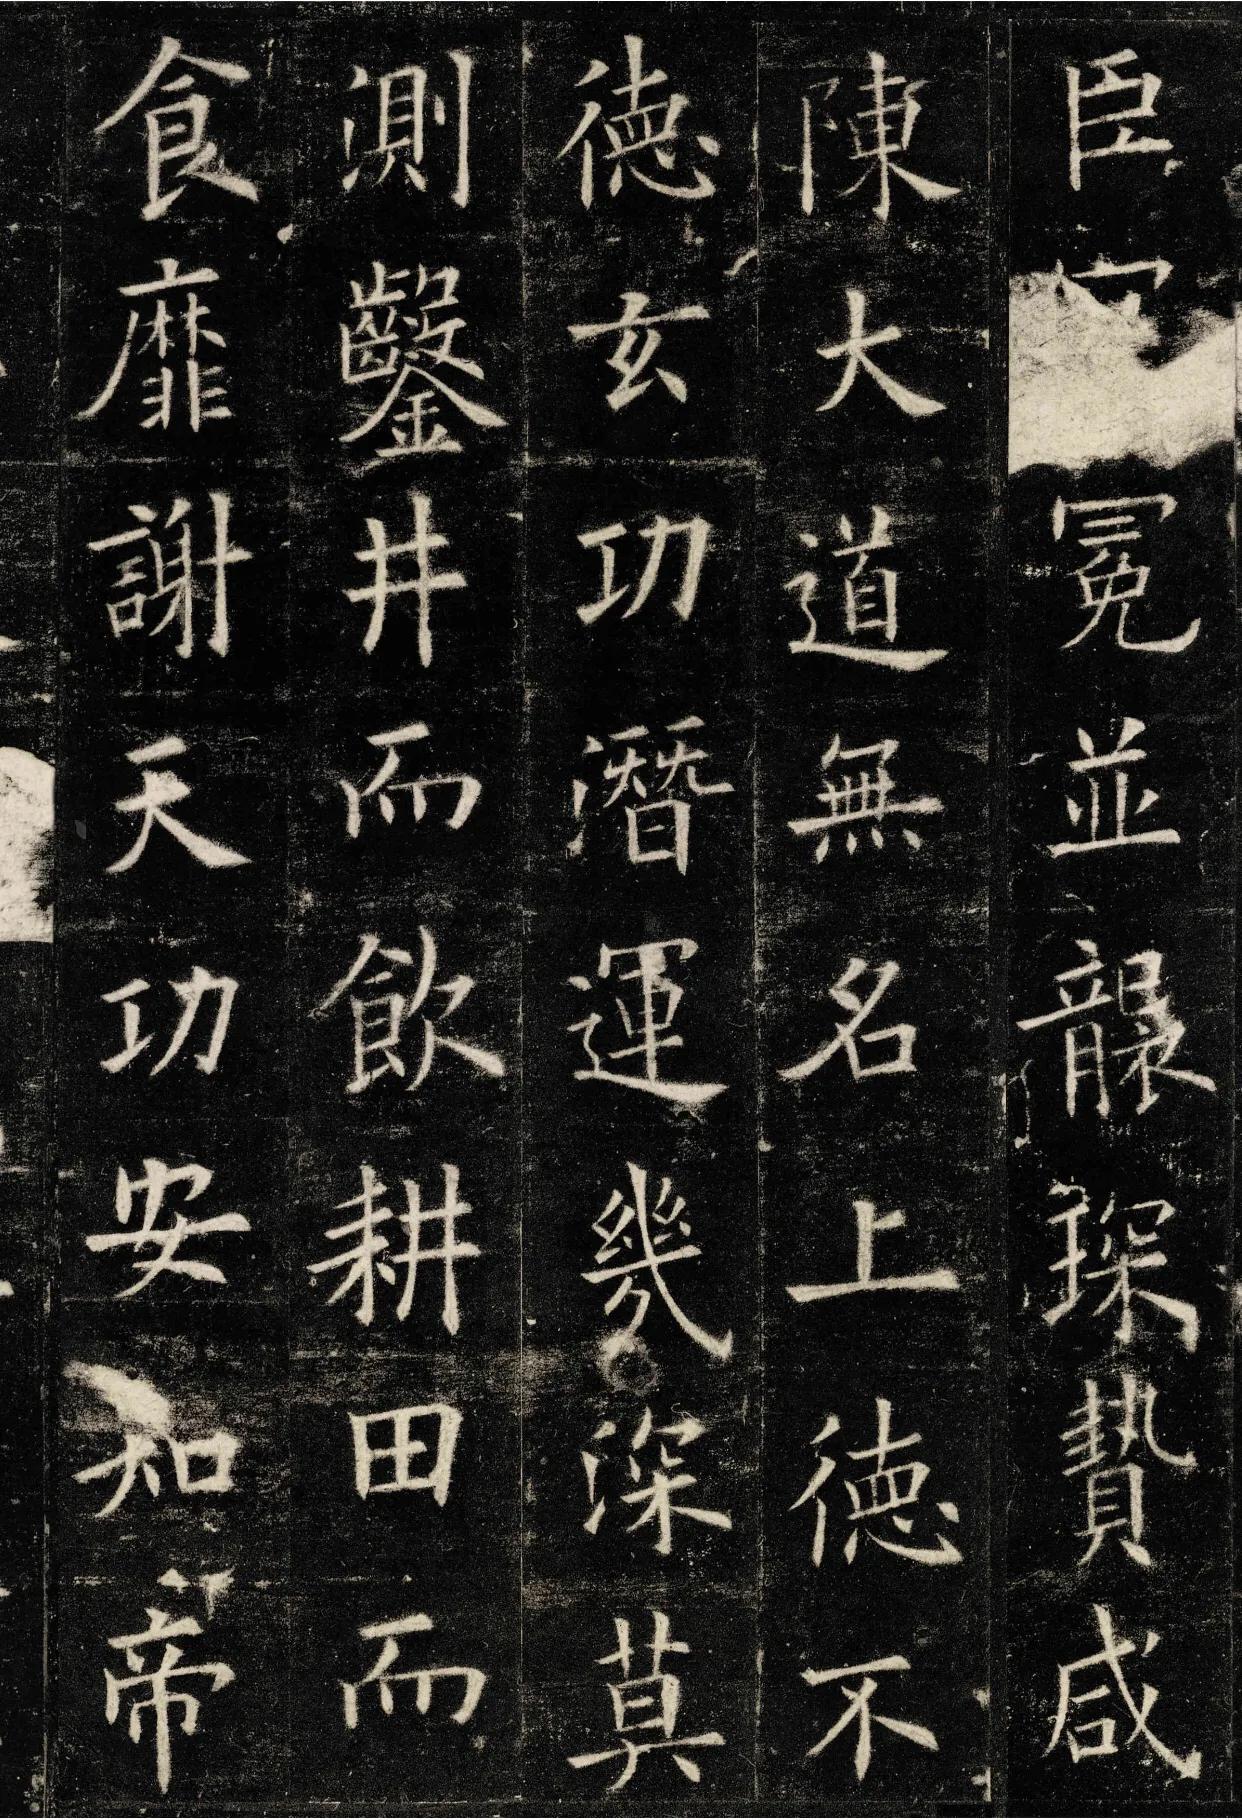 臣冕並襲琛贄咸
陳大道無名上德不
德玄功潛運幾深莫
測鑿井而飲耕田而
食靡謝天功安知帝